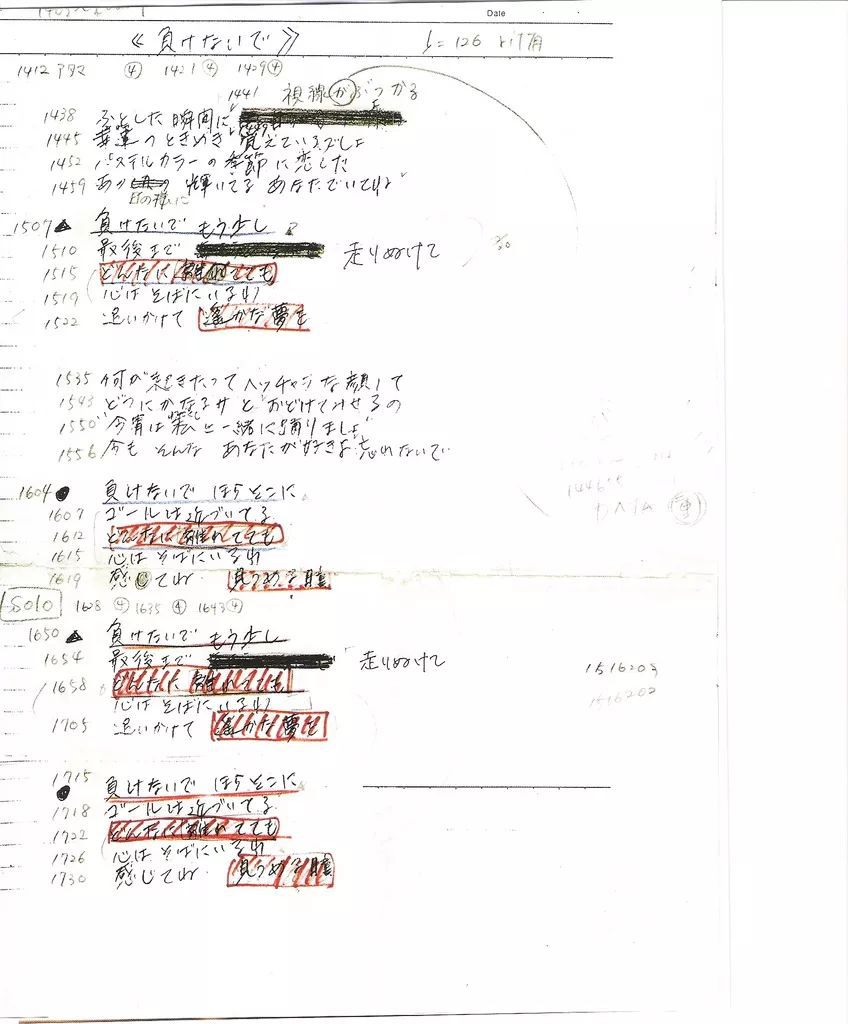 Date
《負けないで》 ♩=126 リハ用
1412 アタマ ④ 1421 ④ 1429 ④
1441 視線がぶつかる
1438 ふとした瞬間に
1445 幸運のときめき 覚えているでしょ
1452 パステルカラーの季節に恋した
1459 あの 輝いてる あなたでいてね
日の様に
1507 ▲ 負けないで もう少し
1510 最後まで 走りぬけて
1515 どんなに 離れてても
1519 心は そばにいるわ
1522 追いかけて 遥かな夢を
1535 何が起きたって ヘッチャラな顔して
1543 どうにかなるサと おどけてみせるの
1550 "今宵は私と一緒に踊りましょ"
1556 今も そんな あなたが好きよ 忘れないで
1604 ● 負けないで ほら そこに
1607 ゴールは近づいてる
1612 どんなに 離れてても
1615 心は そばにいるわ
1619 感じてね 見つめる瞳
Solo 1628 ④ 1635 ④ 1643 ④
1650 ▲ 負けないで もう少し
1654 最後まで 走りぬけて
1516203
1516202
1658 どんなに 離れてても
心は そばにいるわ
1705 追いかけて 遥かな夢を
1715 ● 負けないで ほら そこに
1718 ゴールは近づいてる
1722 どんなに 離れてても
1726 心は そばにいるわ
1730 感じてね 見つめる瞳